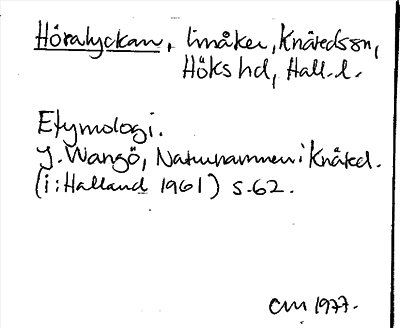 Höralyckan, linåker, Knäredssn,
Höks hd, Hall. l.
Etymologi.
J. Wangö, Naturnamnen i Knäred.
(i: Halland 1961) s. 62.
CM 1977.